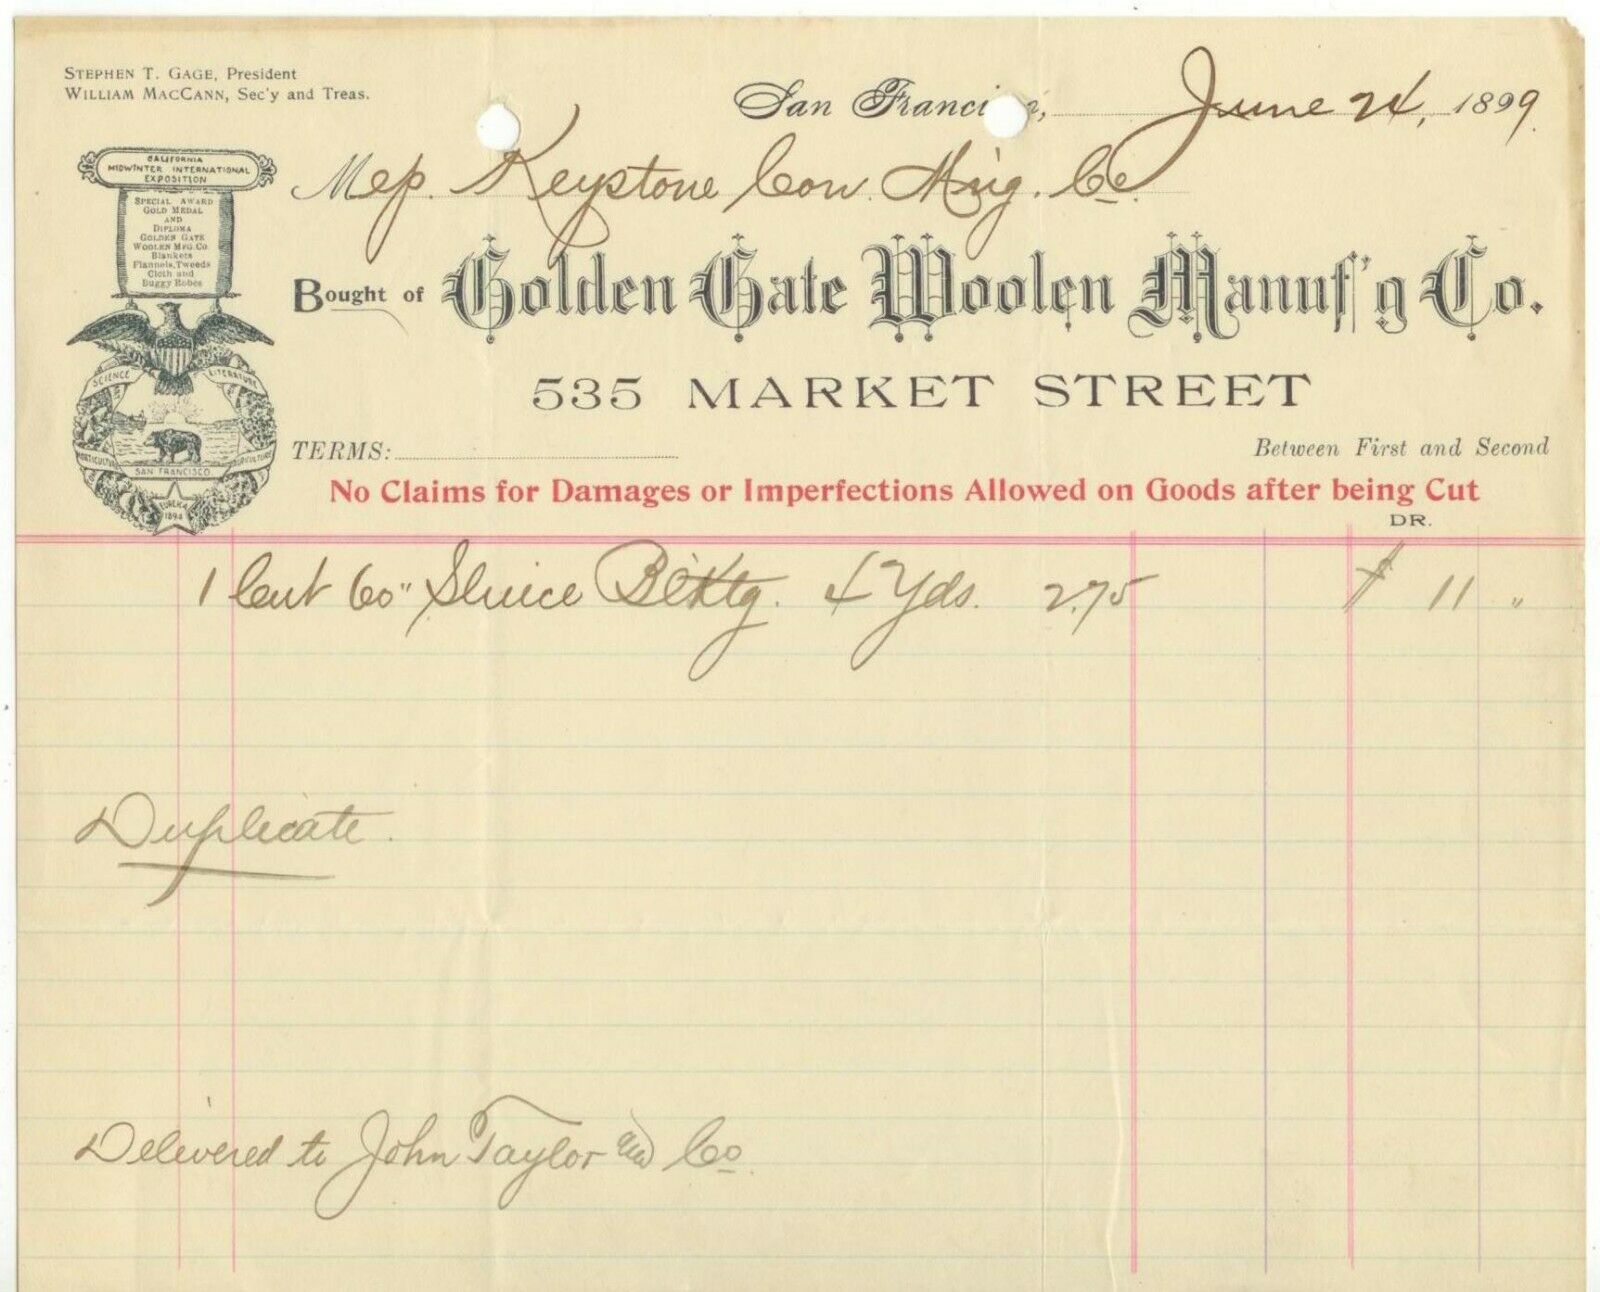 STEPHEN T. GAGE, President
WILLIAM MACCANN, Sec'y and Treas.
San Francisco, June 24, 1899.
Keystone Con. M'ng. Co.
CALIFORNIA
MIDWINTER INTERNATIONAL
EXPOSITION
SPECIAL AWARD
GOLD MEDAL
AND
DIPLOMA
GOLDEN GATE
WOOLEN MFG. CO.
Blankets
Flannels, Tweeds
Cloth and
Buggy Robes
SCIENCE LITERATURE
HORTICULTURE AGRICULTURE
SAN FRANCISCO
EUREKA
1894
Bought of Golden Gate Woolen Manuf'g Co.
535 MARKET STREET
TERMS: Between First and Second
No Claims for Damages or Imperfections Allowed on Goods after being Cut
DR.
1 Cut 60" Sluice Bl'ktg. 4 Yds. 2.75 $ 11 "
Duplicate.
Delivered to John Taylor and Co.